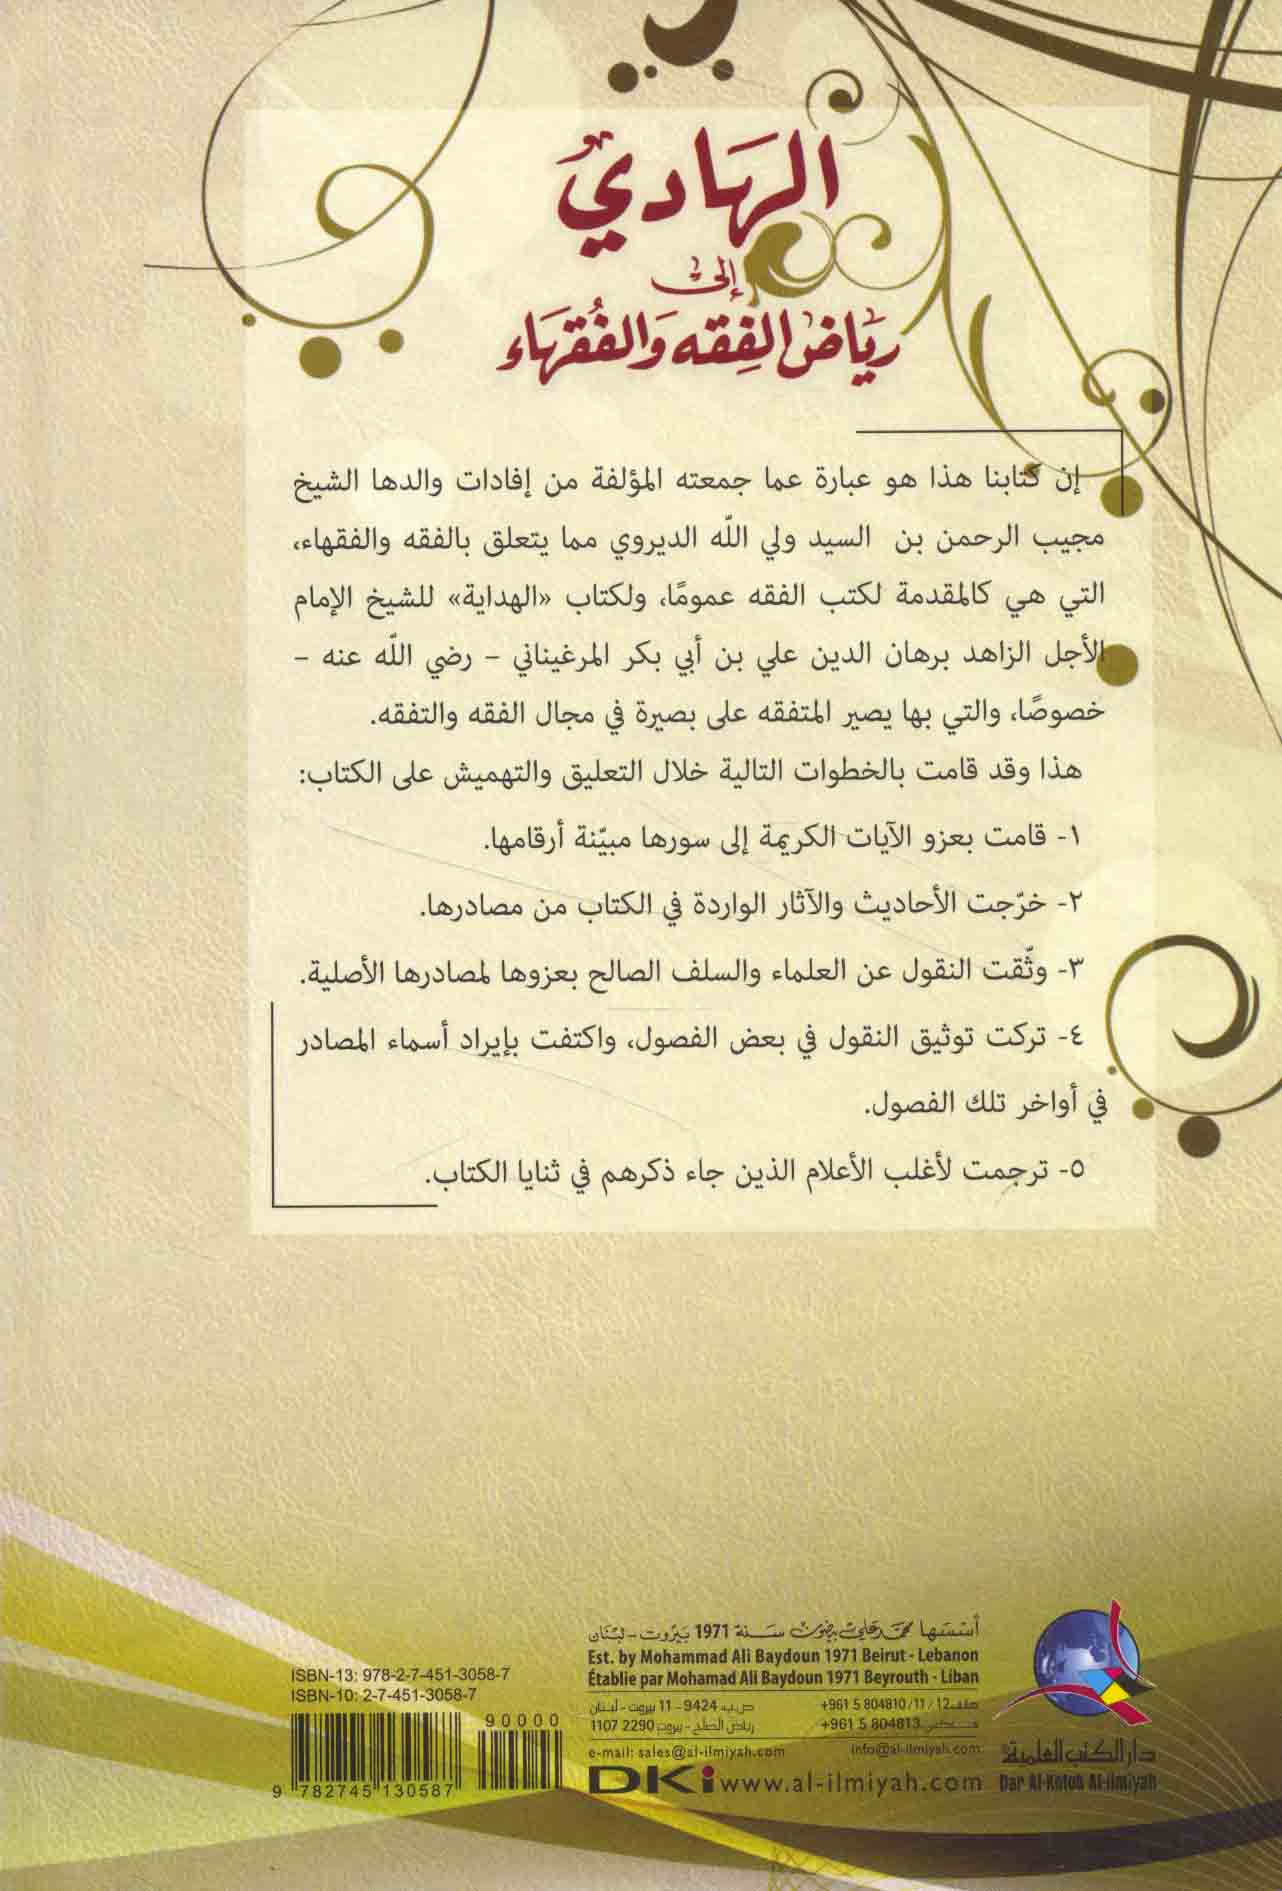 الهادي
إلى
رياض الفقه والفقهاء
إن كتابنا هذا هو عبارة عما جمعته المؤلفة من إفادات والدها الشيخ
مجيب الرحمن بن السيد ولي الله الديروي مما يتعلق بالفقه والفقهاء،
التي هي كالمقدمة لكتب الفقه عمومًا، ولكتاب «الهداية» للشيخ الإمام
الأجل الزاهد برهان الدين علي بن أبي بكر المرغيناني - رضي الله عنه -
خصوصًا، والتي بها يصير المتفقه على بصيرة في مجال الفقه والتفقه.
هذا وقد قامت بالخطوات التالية خلال التعليق والتهميش على الكتاب:
١- قامت بعزو الآيات الكريمة إلى سورها مبيّنة أرقامها.
٢- خرّجت الأحاديث والآثار الواردة في الكتاب من مصادرها.
٣- وثّقت النقول عن العلماء والسلف الصالح بعزوها لمصادرها الأصلية.
٤- تركت توثيق النقول في بعض الفصول، واكتفت بإيراد أسماء المصادر
في أواخر تلك الفصول.
٥- ترجمت لأغلب الأعلام الذين جاء ذكرهم في ثنايا الكتاب.
أسسها محمد علي بيضون سنة 1971 بيروت - لبنان
Est. by Mohammad Ali Baydoun 1971 Beirut - Lebanon
Établie par Mohamad Ali Baydoun 1971 Beyrouth - Liban
هاتف: +961 5 804810 / 11 / 12 ص.ب: 9424 - 11 بيروت - لبنان
فاكس: +961 5 804813 رياض الصلح - بيروت 2290 1107
e-mail: sales@al-ilmiyah.com info@al-ilmiyah.com
DKi www.al-ilmiyah.com
دار الكتب العلمية
Dar Al-Kotob Al-ilmiyah
ISBN-13: 978-2-7-451-3058-7
ISBN-10: 2-7-451-3058-7
90000
9 782745 130587